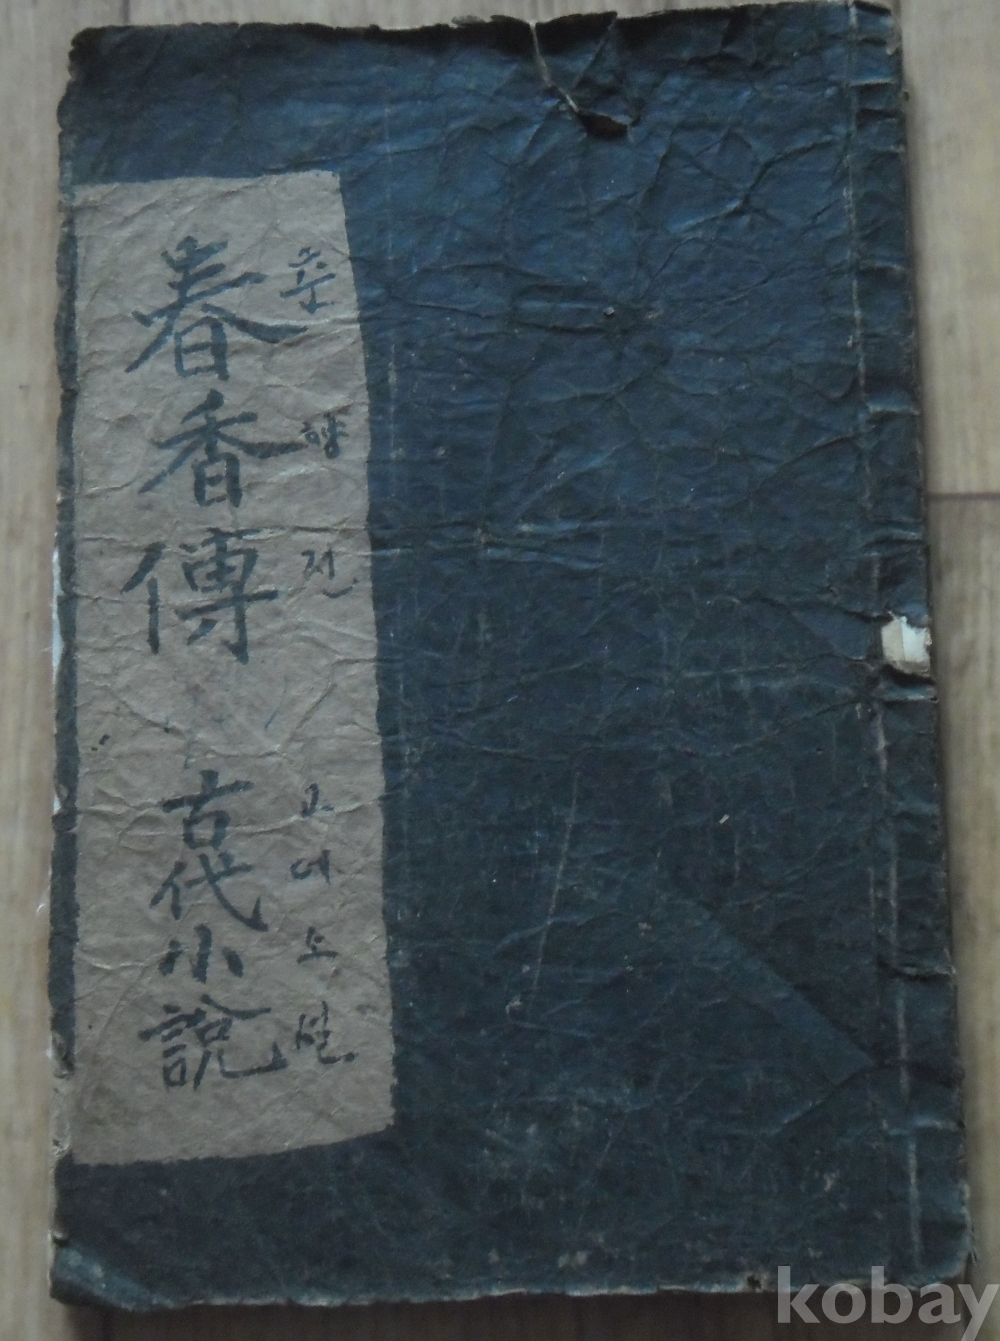 춘향전 고대소설
春香傳 古代小說
kobay